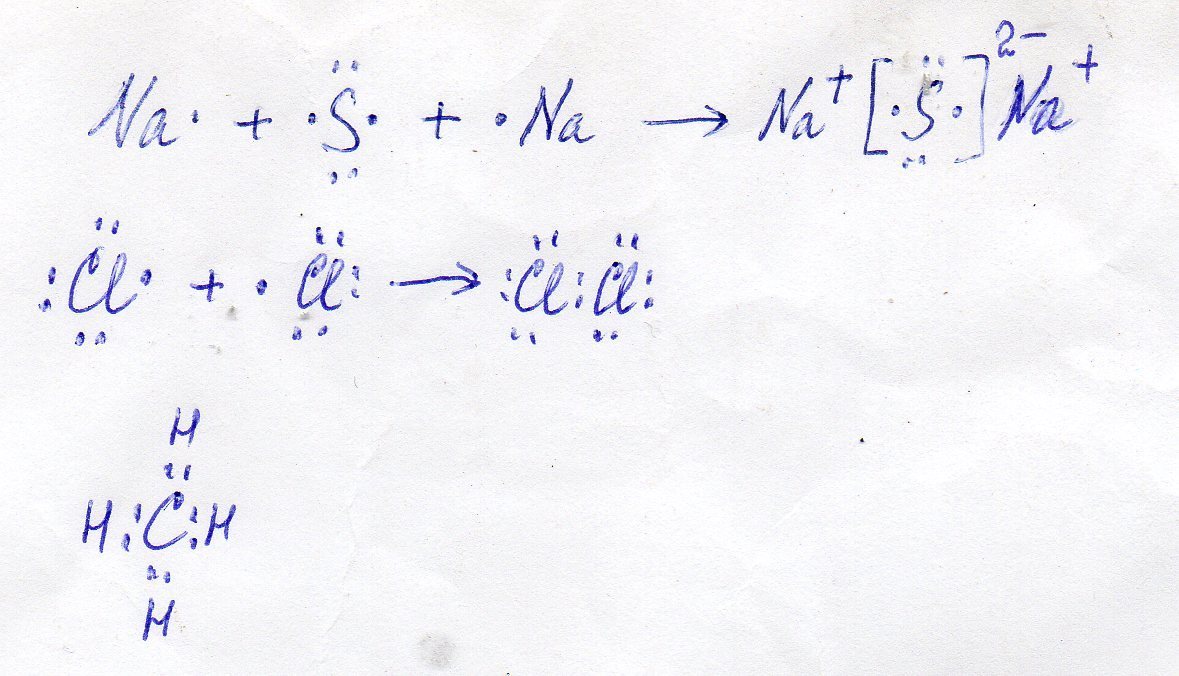 Na· + ·S̤̈· + ·Na → Na⁺ [·S̤̈·]²⁻ Na⁺
:C̤̈l· + ·C̤̈l: → :C̤̈l:C̤̈l:
H
¨
H:C:H
¨
H